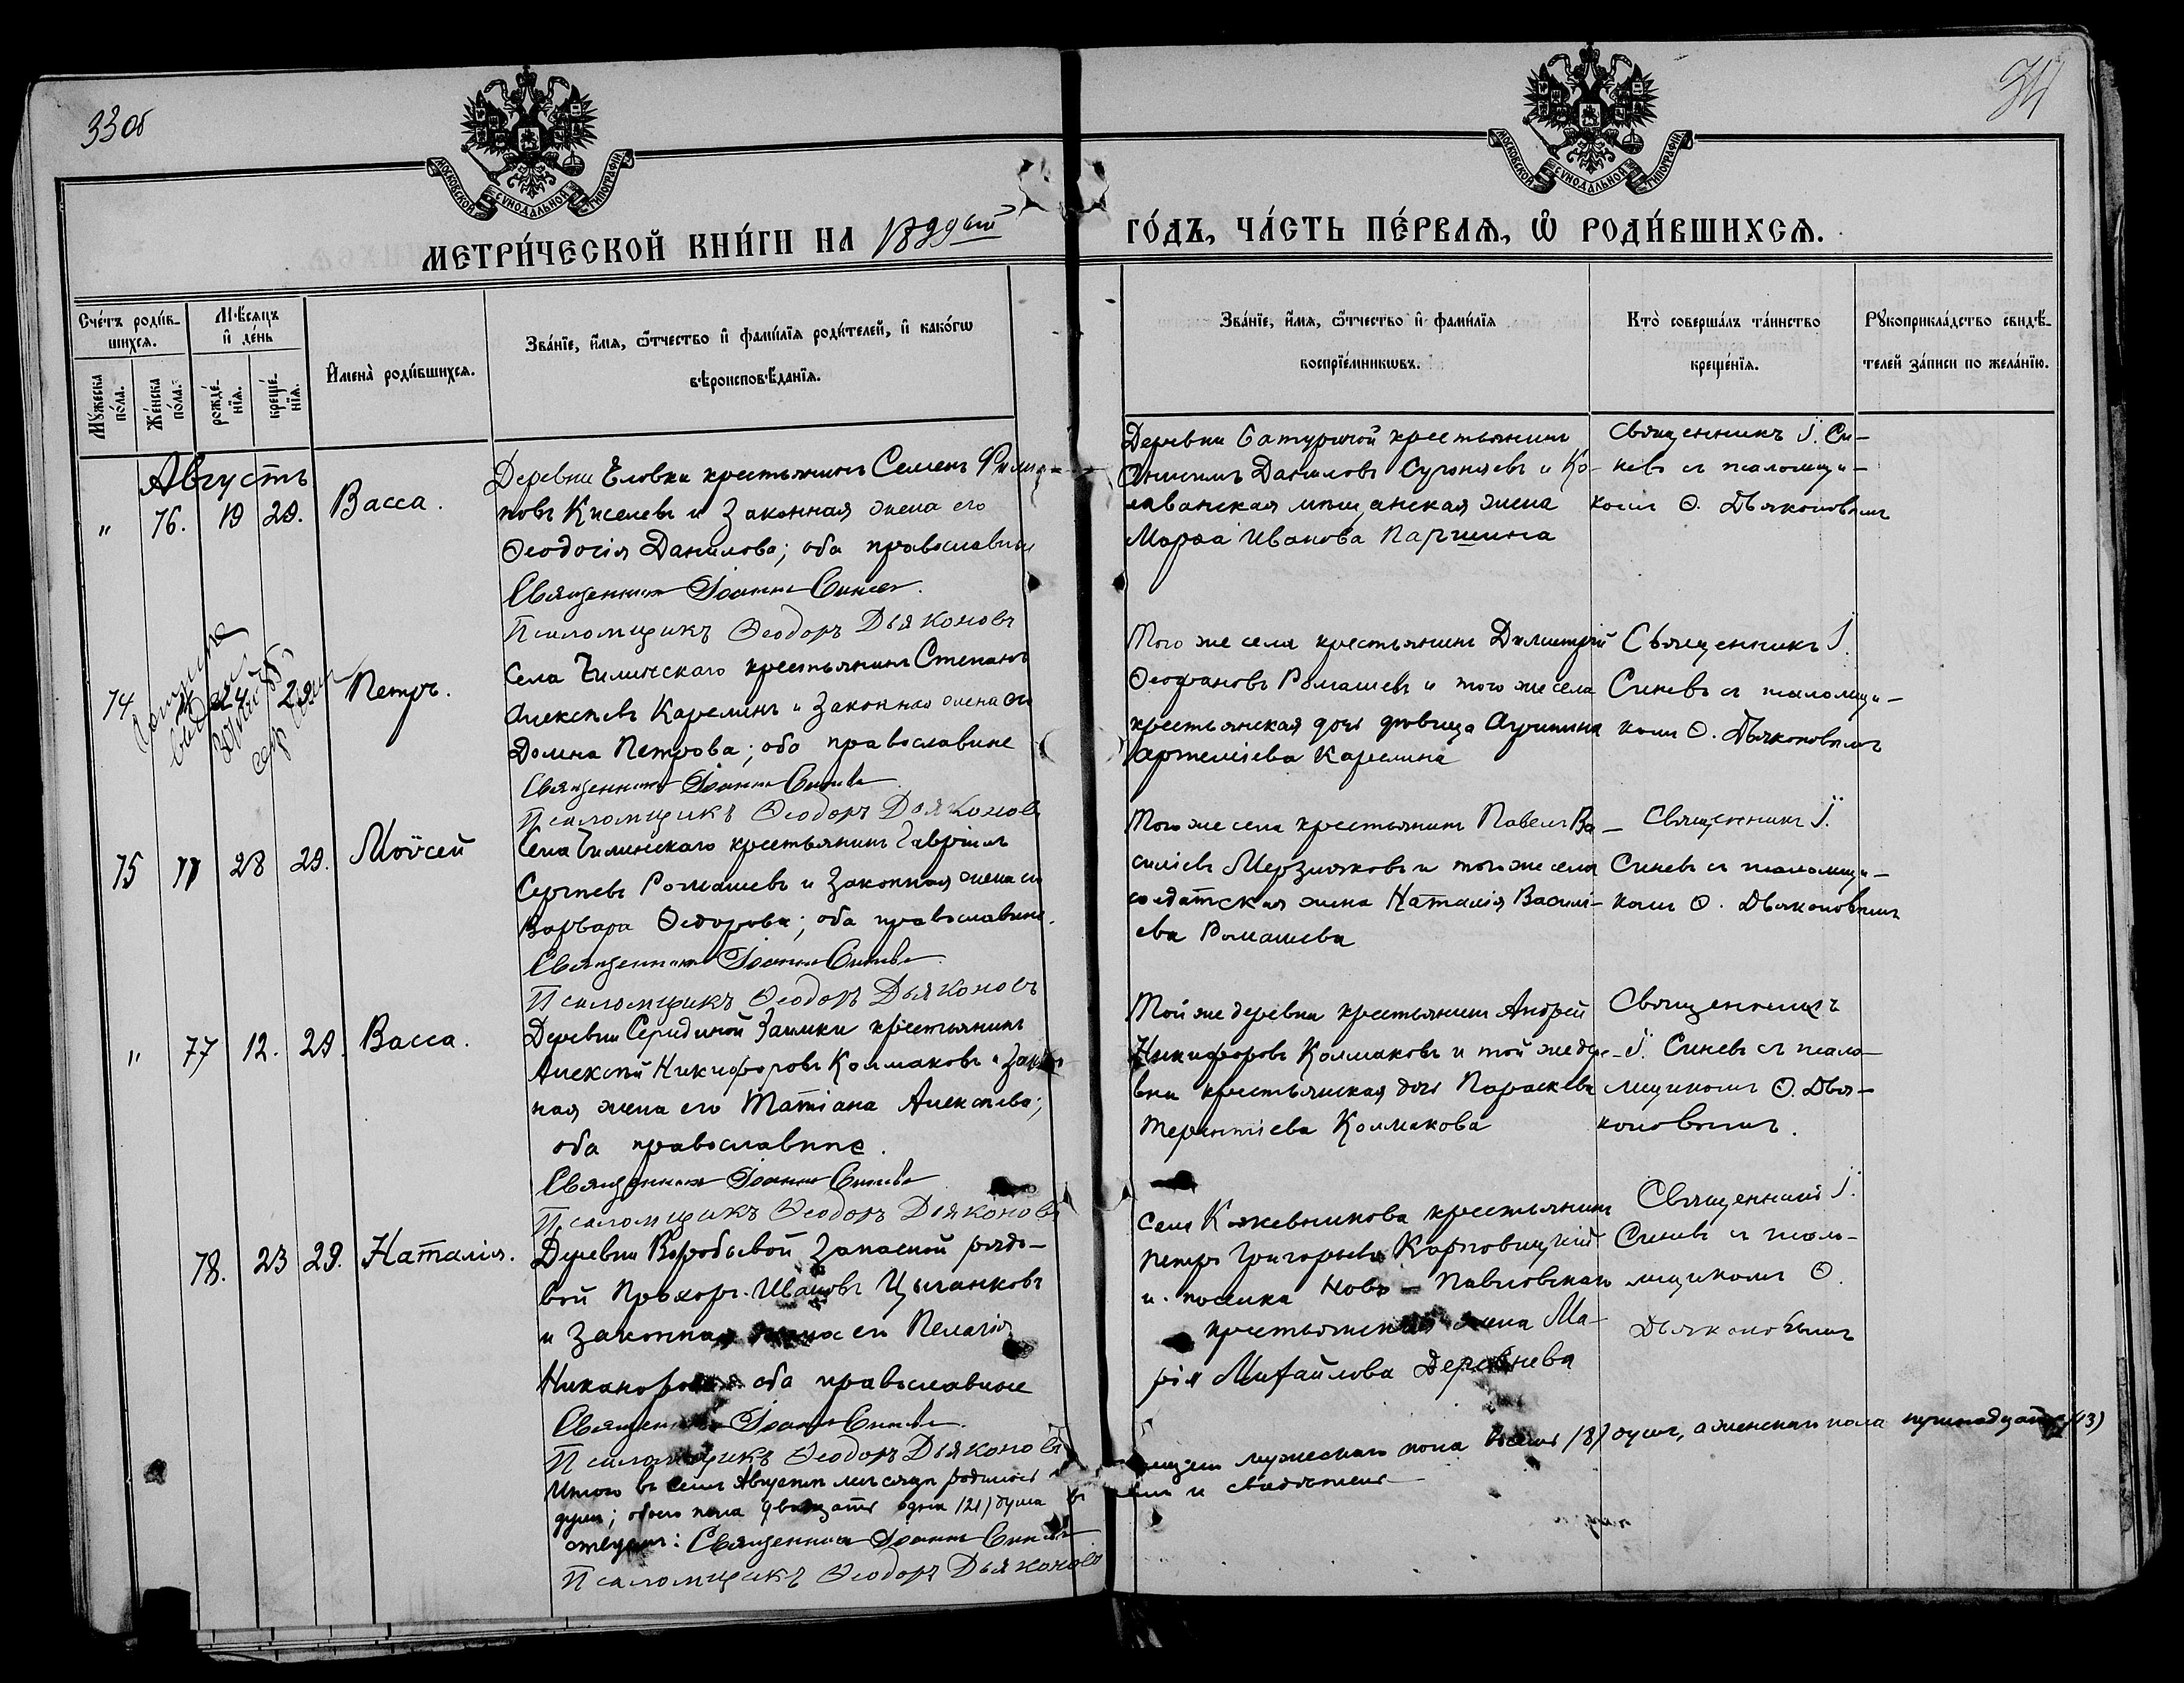 33 об
34
МОСКОВСКОЙ СУНОДАЛЬНОЙ ТИПОГРАФІИ
МОСКОВСКОЙ СУНОДАЛЬНОЙ ТИПОГРАФІИ
МЕТРИ́ЧЕСКОЙ КНИ́ГИ НА 1899ый ГО́ДЪ, ЧА́СТЬ ПЕ́РВАѦ, Ѡ҆ РОДИ́ВШИХСѦ.
Сче́тъ роди́в-
шихсѧ.
Мꙋ́жеска по́ла.
Же́нска по́ла.
Мѣ́сѧцъ и҆ де́нь
рожде́-нїѧ.
креще́-нїѧ.
И҆мена̀ роди́вшихсѧ.
Зва́нїе, и҆́мѧ, ѻ҆́тчество и҆ фами́лїѧ роди́телей, и҆ како́гѡ
вѣроисповѣ́данїѧ.
Зва́нїе, и҆́мѧ, ѻ҆́тчество и҆ фами́лїѧ
воспрїе́мникѡвъ.
Кто̀ соверша́лъ та́инство
креще́нїѧ.
Рꙋкоприкла́дство свидѣ́-
телей за́писи по жела́нїю.
Августъ
" 76. 19 29. Васса.
Деревни Еловки крестьянинъ Семенъ Филип-
повъ Киселевъ и законная жена его
Ѳеодосія Данилова; оба православные
Священникъ Іоаннъ Синевъ.
Псаломщикъ Ѳеодоръ Дьяконовъ
Деревни Батуриной крестьянинъ
Онисимъ Даниловъ и Ко-
лыванская мѣщанская жена
Марѳа Иванова Паршина
Священникъ І. Си-
невъ съ псаломщи-
комъ Ѳ. Дьяконовымъ
74 24 29 Петръ.
Села Чилинскаго крестьянинъ Степанъ
Алексѣевъ Карелинъ и законная жена его
Домна Петрова; оба православные
Священникъ Іоаннъ Синевъ
Псаломщикъ Ѳеодоръ Дьяконовъ
Того же села крестьянинъ Димитрій
Ѳеофановъ Ромашевъ и того же села
крестьянская дочь дѣвица Агрипина
Артеміева Карелина
Священникъ І.
Синевъ съ псаломщи-
комъ Ѳ. Дьяконовымъ
75 " 28 29. Моѵсей
Села Чилинскаго крестьянинъ Гавріилъ
Сергѣевъ Ромашевъ и законная жена его
Варвара Ѳедорова; оба православные.
Священникъ Іоаннъ Синевъ
Псаломщикъ Ѳеодоръ Дьяконовъ
Того же села крестьянинъ Павелъ Ва-
силіевъ Мерзляковъ и того же села
солдатская жена Наталія Васили-
ева Ромашева
Священникъ І.
Синевъ съ псаломщи-
комъ Ѳ. Дьяконовымъ
" 77 12. 29. Васса.
Деревни Серединой Заимки крестьянинъ
Алексѣй Никифоровъ Колмаковъ и закон-
ная жена его Татіана Алексѣева;
оба православные.
Священникъ Іоаннъ Синевъ
Псаломщикъ Ѳеодоръ Дьяконовъ
Той же деревни крестьянинъ Андрей
Никифоровъ Колмаковъ и той же дере-
вни крестьянская дочь Параскева
Терентіева Колмакова
Священникъ
І. Синевъ съ псало-
мщикомъ Ѳ. Дья-
коновымъ.
78. 23 29. Наталія.
Деревни Воробьевой запасной рядо-
вой Прохоръ Ивановъ Цыганковъ
и законная жена его Пелагія
Никанорова оба православные
Священникъ Іоаннъ Синевъ.
Псаломщикъ Ѳеодоръ Дьяконовъ
Села Кожевникова крестьянинъ
Петръ Григорьевъ Карповицкій
и поселка Ново-Павловскаго
крестьянская жена Ма-
рія Михайлова Деревнева
Священникъ І.
Синевъ съ псало-
мщикомъ Ѳ.
Дьяконовымъ
Итого въ семъ Августѣ мѣсяцѣ родилось мужескаго пола восемь (8) душъ, а женскаго пола тринадцать (13)
душъ; обоего пола двадцать одна (21) душа и свидѣтель-
ствуемъ: Священникъ Іоаннъ Синевъ
Псаломщикъ Ѳеодоръ Дьяконовъ